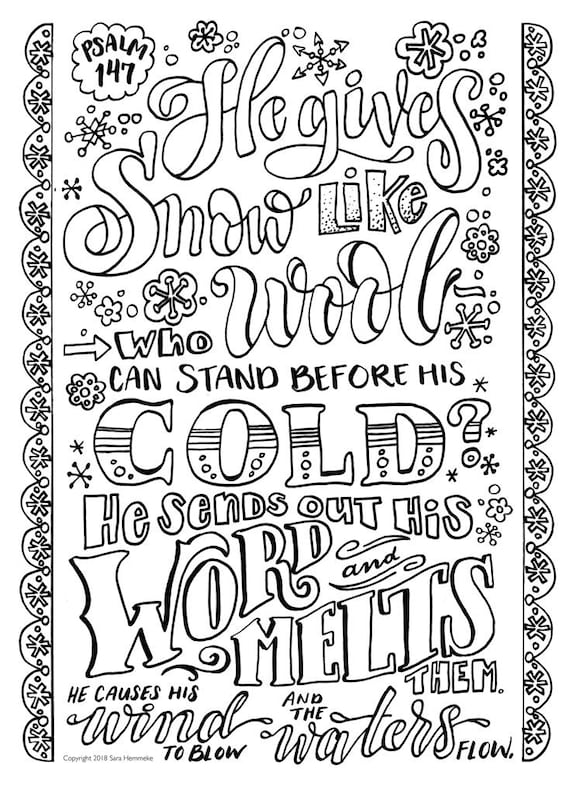 PSALM
147
He gives
Snow Like
Wool
Who
CAN STAND BEFORE HIS
COLD?
He sends out His
WORD and
MELTS
THEM.
HE CAUSES HIS
wind
TO BLOW
AND
THE
waters
FLOW.
Copyright 2018 Sara Hemmeke